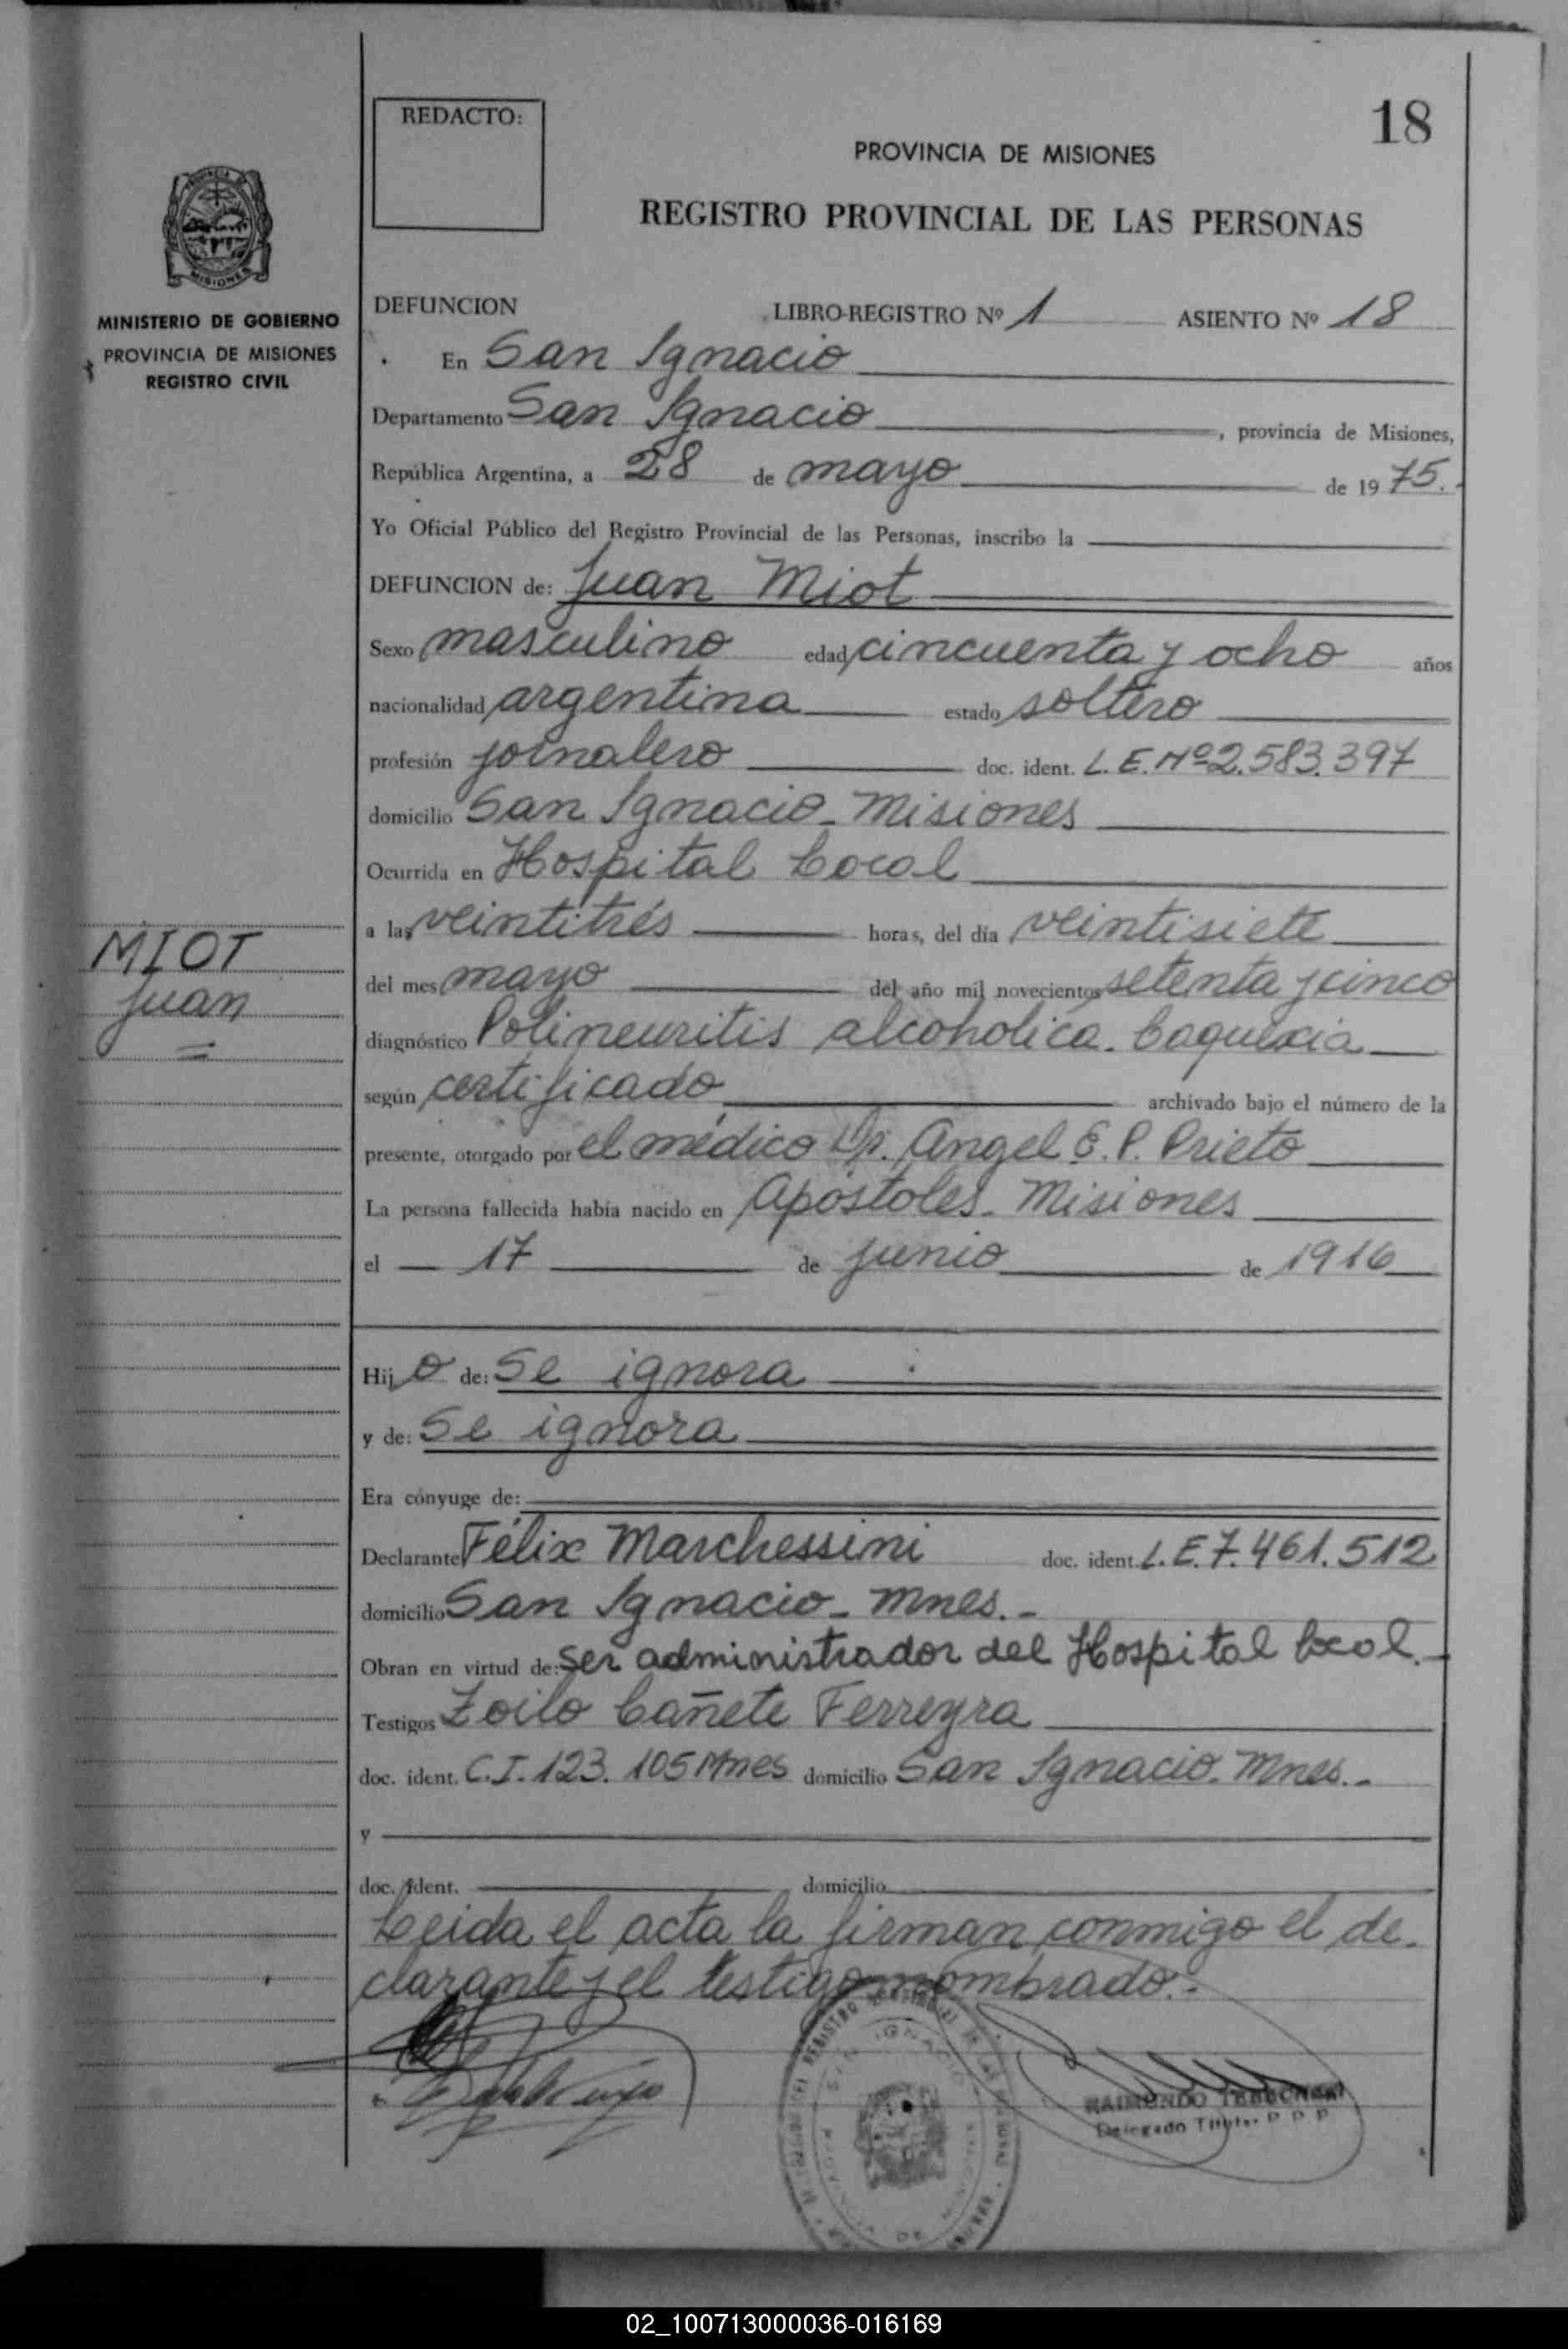 REDACTO:
18
PROVINCIA DE MISIONES
REGISTRO PROVINCIAL DE LAS PERSONAS
MISIONES
MINISTERIO DE GOBIERNO
PROVINCIA DE MISIONES
REGISTRO CIVIL
DEFUNCION LIBRO-REGISTRO Nº 1 ASIENTO Nº 18
En San Ignacio
Departamento San Ignacio, provincia de Misiones,
República Argentina, a 28 de mayo de 1975.
Yo Oficial Público del Registro Provincial de las Personas, inscribo la
DEFUNCION de: Juan Miot
Sexo masculino edad cincuenta y ocho años
nacionalidad argentina estado soltero
profesión jornalero doc. ident. L.E. Nº 2.583.397
domicilio San Ignacio - Misiones
Ocurrida en Hospital Local
a las veintitrés horas, del día veintisiete
del mes mayo del año mil novecientos setenta y cinco
diagnóstico Polineuritis alcoholica. Caquexia
según certificado archivado bajo el número de la
presente, otorgado por el médico Dr. Angel E. P. Prieto
La persona fallecida había nacido en Apóstoles - Misiones
el 17 de junio de 1916
MIOT
Juan
Hijo de: Se ignora
y de: Se ignora
Era cónyuge de:
Declarante Félix Marchessini doc. ident. L.E. 7.461.512
domicilio San Ignacio - Mnes.-
Obran en virtud de: Ser administrador del Hospital Local.-
Testigos Zoilo Cañete Ferreyra
doc. ident. C.I. 123.105 Mnes domicilio San Ignacio. Mnes.-
y
doc. ident. domicilio
Leida el acta la firman conmigo el de-
clarante y el testigo nombrado.-
RAIMUNDO
Delegado Titular
02_100713000036-016169